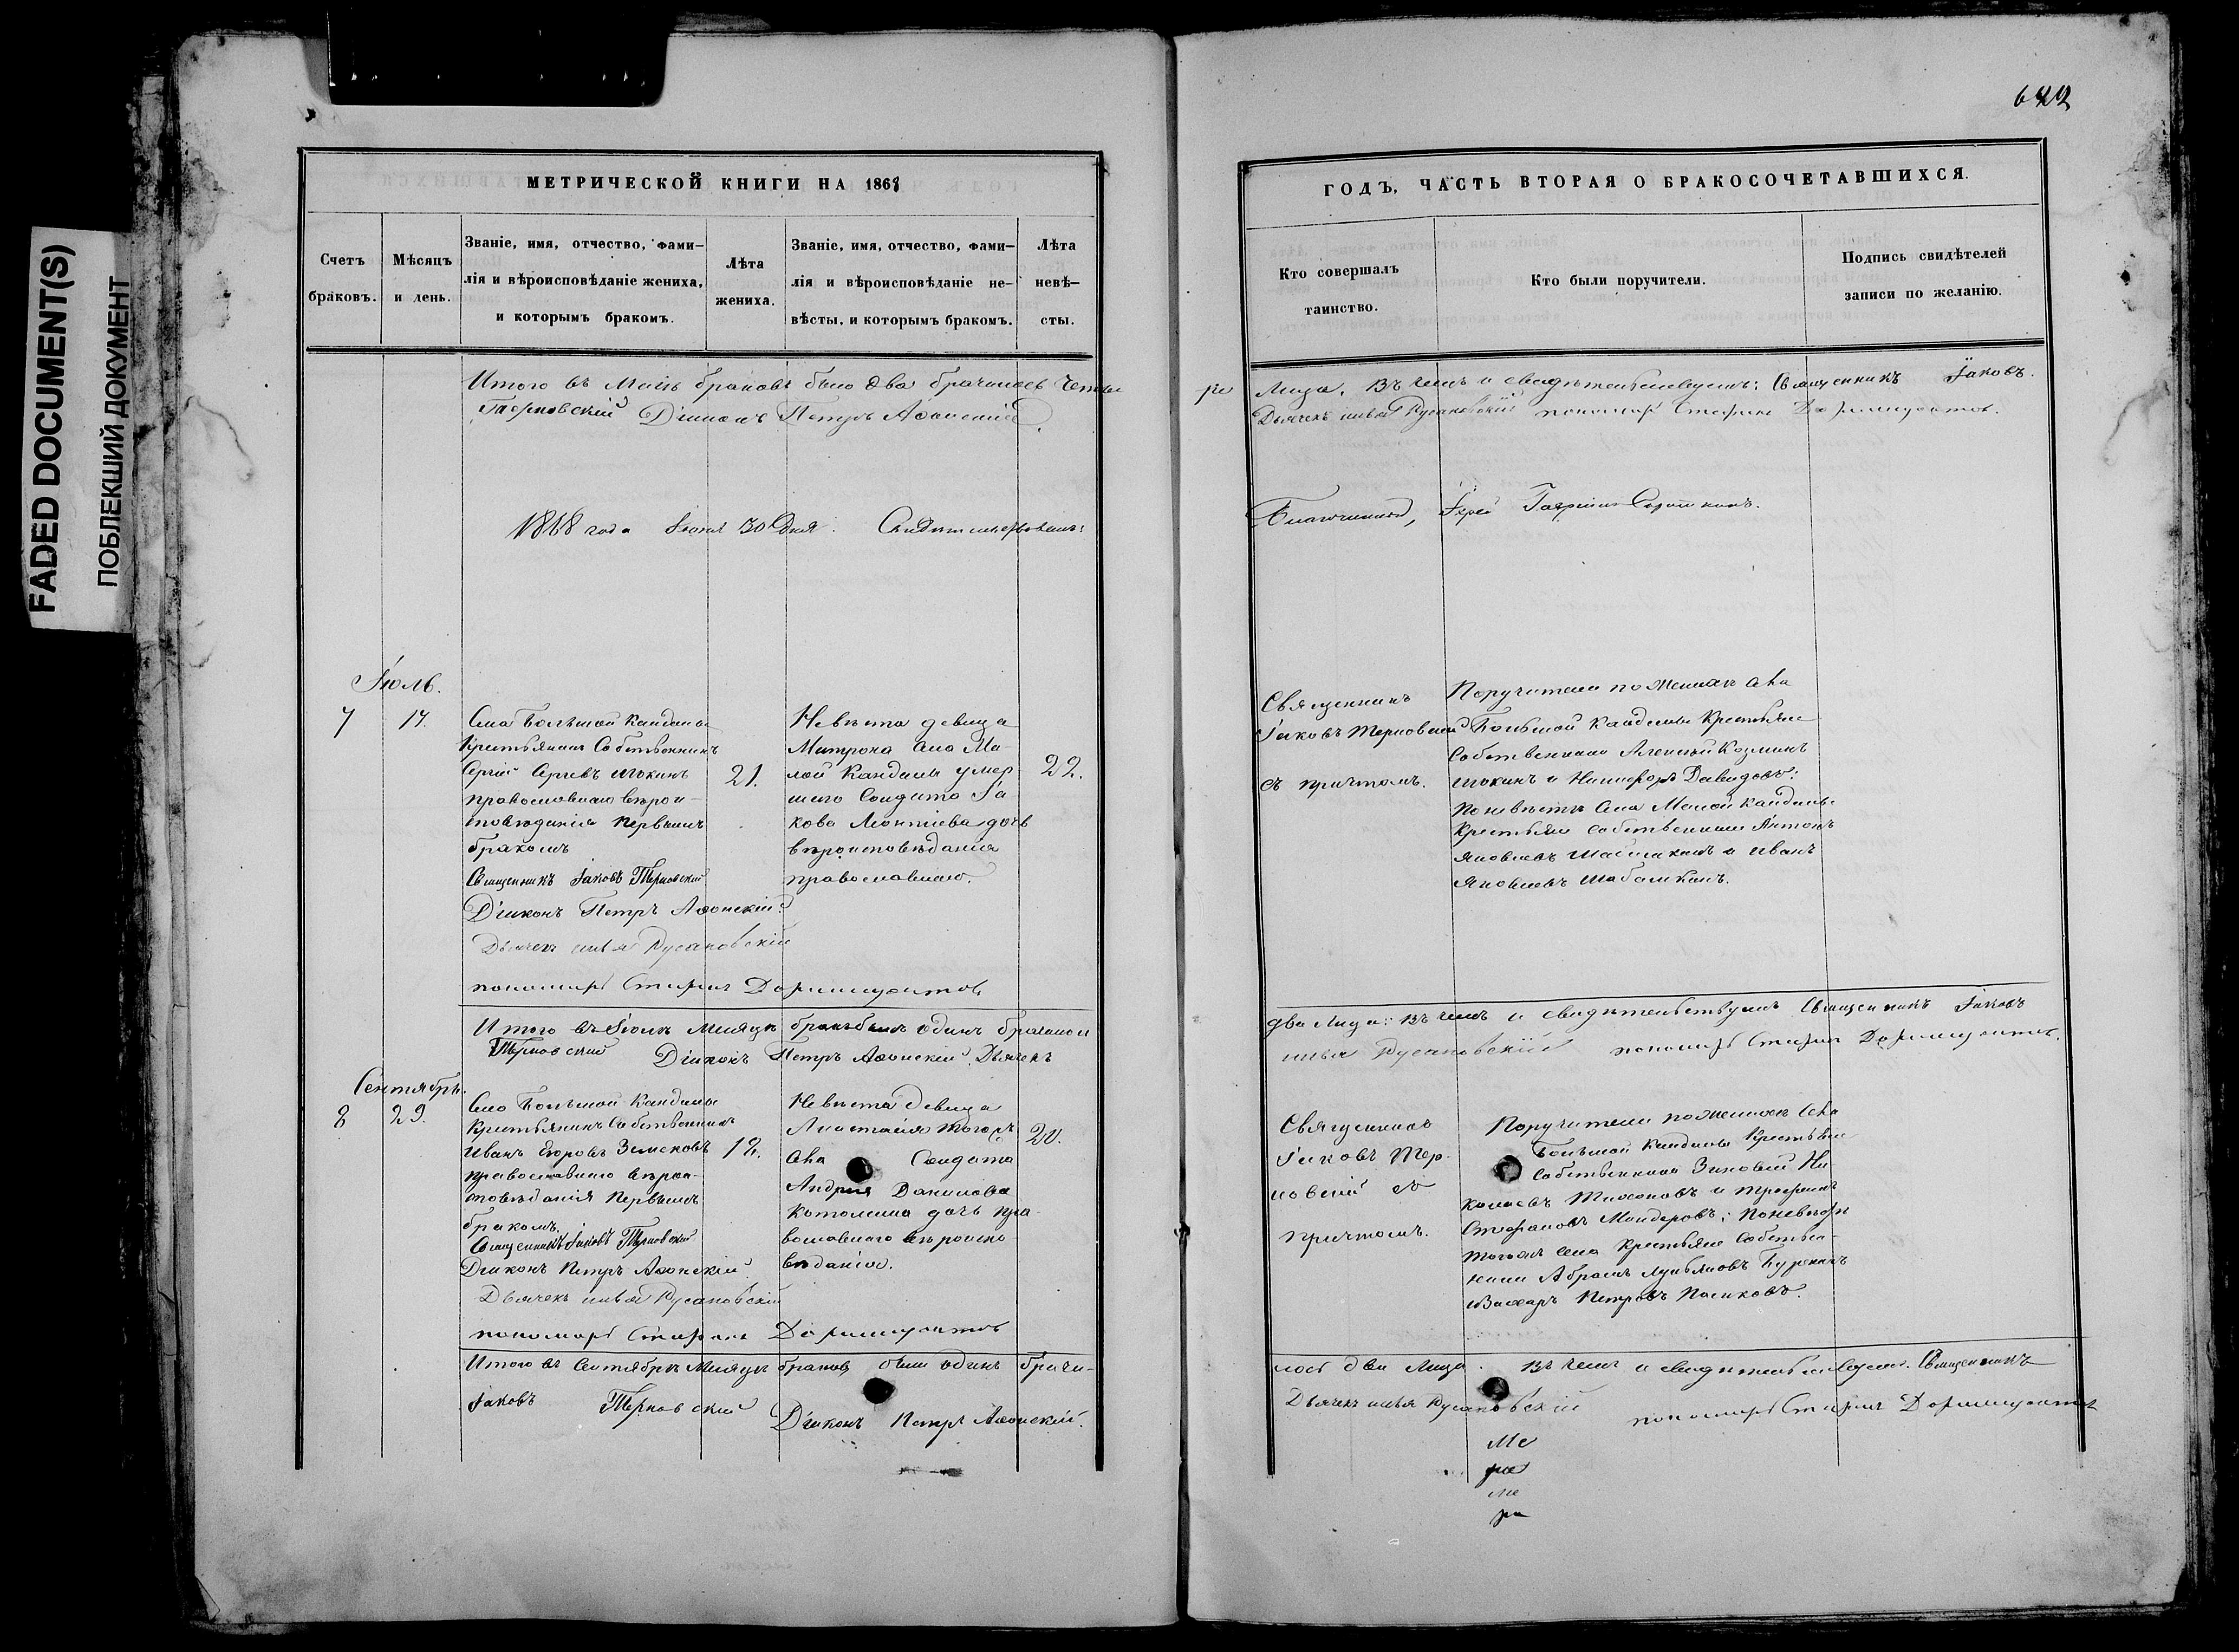 FADED DOCUMENT(S)
ПОБЛЕКШИЙ ДОКУМЕНТ
МЕТРИЧЕСКОЙ КНИГИ НА 1868
Счетъ
браковъ.
Мѣсяцъ
и день.
Званіе, имя, отчество, фами-
лія и вѣроисповѣданіе жениха,
и которымъ бракомъ.
Лѣта
жениха.
Званіе, имя, отчество, фами-
лія и вѣроисповѣданіе не-
вѣсты, и которымъ бракомъ.
Лѣта
невѣ-
сты.
Итого въ Маѣ браковъ было два брачилось четы
Терновскій Діаконъ Петръ Аѳонскій
1868 года Іюня 30 дня. Свидѣтельствовалъ:
Іюль.
7 17.
Села Большой Кандалы
Крестьянинъ Собственникъ
Сергій Сергѣевъ Шокинъ
православнаго вѣрои-
сповѣданія первымъ
бракомъ
Священникъ Іаковъ Терновскій
Діаконъ Петръ Аѳонскій
Дьячекъ Илья Русановскій
пономарь Стефанъ Доримедонтовъ
21.
Невѣста девица
Матрона села Ма-
лой Кандалы умер-
шаго Солдата Іа-
кова Леонтіева дочь
вѣроисповѣданія
православнаго.
22.
Итого въ Іюлѣ месяцѣ бракъ былъ одинъ брачилось
Терновскій Діаконъ Петръ Аѳонскій. Дьячекъ
Сентябрь.
8 29.
Села Большой Кандалы
Крестьянинъ Собственникъ
Иванъ Егоровъ Земсковъ
православнаго вѣрои-
сповѣданія первымъ
бракомъ.
Священникъ Іаковъ Терновскій
Діаконъ Петръ Аѳонскій.
Дьячекъ Илья Русановскій
пономарь Стефанъ Доримедонтовъ
18.
Невѣста девица
Анастасія того же
села Солдата
Андрея Данилова
дочь пра-
вославнаго вѣроиспо-
вѣданія.
20.
Итого въ Сентябрѣ месяцѣ браковъ былъ одинъ брачи-
Іаковъ Терновскій
Діаконъ Петръ Аѳонскій.
642
ГОДЪ, ЧАСТЬ ВТОРАЯ О БРАКОСОЧЕТАВШИХСЯ.
Кто совершалъ
таинство.
Кто были поручители.
Подпись свидѣтелей
записи по желанію.
ре лица. Въ чемъ и свидѣтельствуемъ: Священникъ Іаковъ.
Дьячекъ Илья Русановскій пономарь Стефанъ Доримедонтовъ.
Благочинный, Іерей
Священникъ
Іаковъ Терновскій
съ причтомъ.
Поручители по женихѣ села
Большой Кандалы крестьяне
собственники Алексѣй Козминъ
Шокинъ и Никифоръ Давыдовъ:
По невѣстѣ села Малой Кандалы
крестьяне собственники Антонъ
Яковлевъ Шабашкинъ и Иванъ
Яковлевъ Шабашкинъ.
два лица: въ чемъ и свидѣтельствуемъ Священникъ Іаковъ
Илья Русановскій пономарь Стефанъ Доримедонтовъ.
Священникъ
Іаковъ Тер-
новскій съ
причтомъ.
Поручители по женихѣ села
Большой Кандалы крестьяне
собственники Зиновій Ни-
колаевъ Тихоновъ и Трофимъ
Стефановъ Мандеровъ; по невѣстѣ
того же села крестьяне собствен-
ники Абрамъ Лукьяновъ Буренинъ
и Захаръ Петровъ Поляковъ.
лось два лица. Въ чемъ и свидѣтельствуемъ. Священникъ
Дьячекъ Илья Русановскій пономарь Стефанъ Доримедонтовъ
Ме
ре
ме
ри